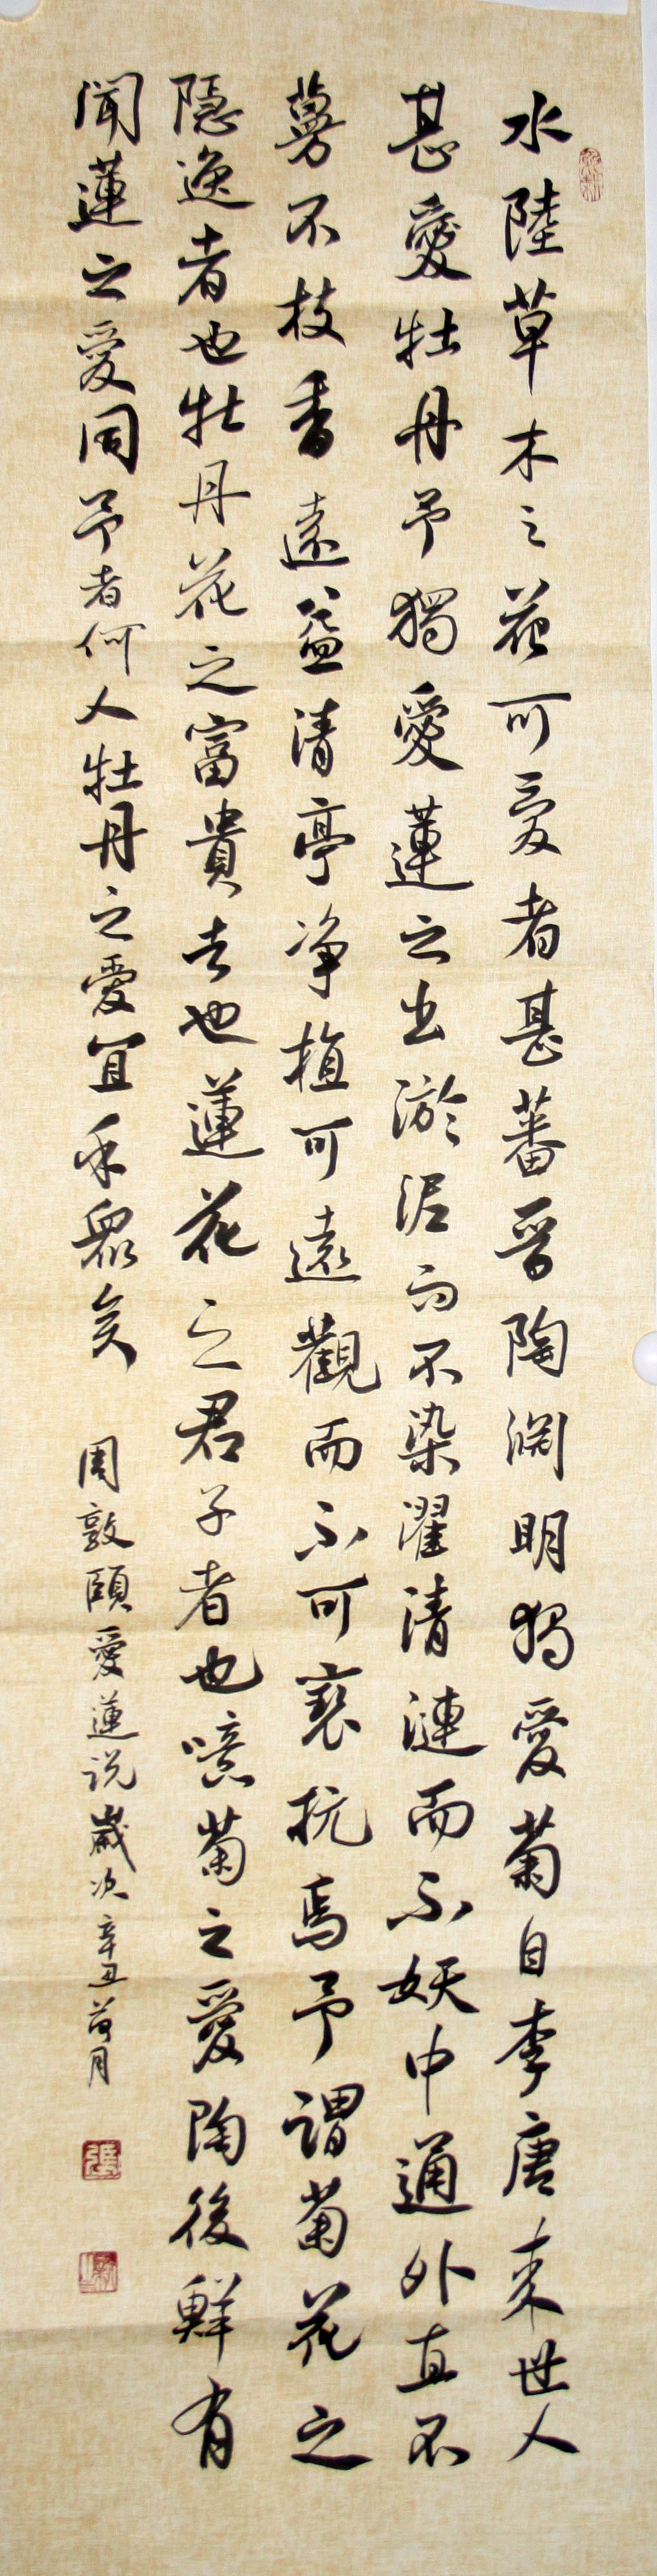 水陸草木之花可愛者甚蕃晋陶渊明獨愛菊自李唐来世人
甚愛牡丹予獨愛蓮之出淤泥而不染濯清漣而不妖中通外直不
蔓不枝香遠益清亭净植可遠觀而不可褻玩焉予謂菊花之
隱逸者也牡丹花之富貴者也蓮花之君子者也噫菊之愛陶後鮮有
聞蓮之愛同予者何人牡丹之愛宜乎衆矣 周敦頤愛蓮说歲次辛丑荷月
張